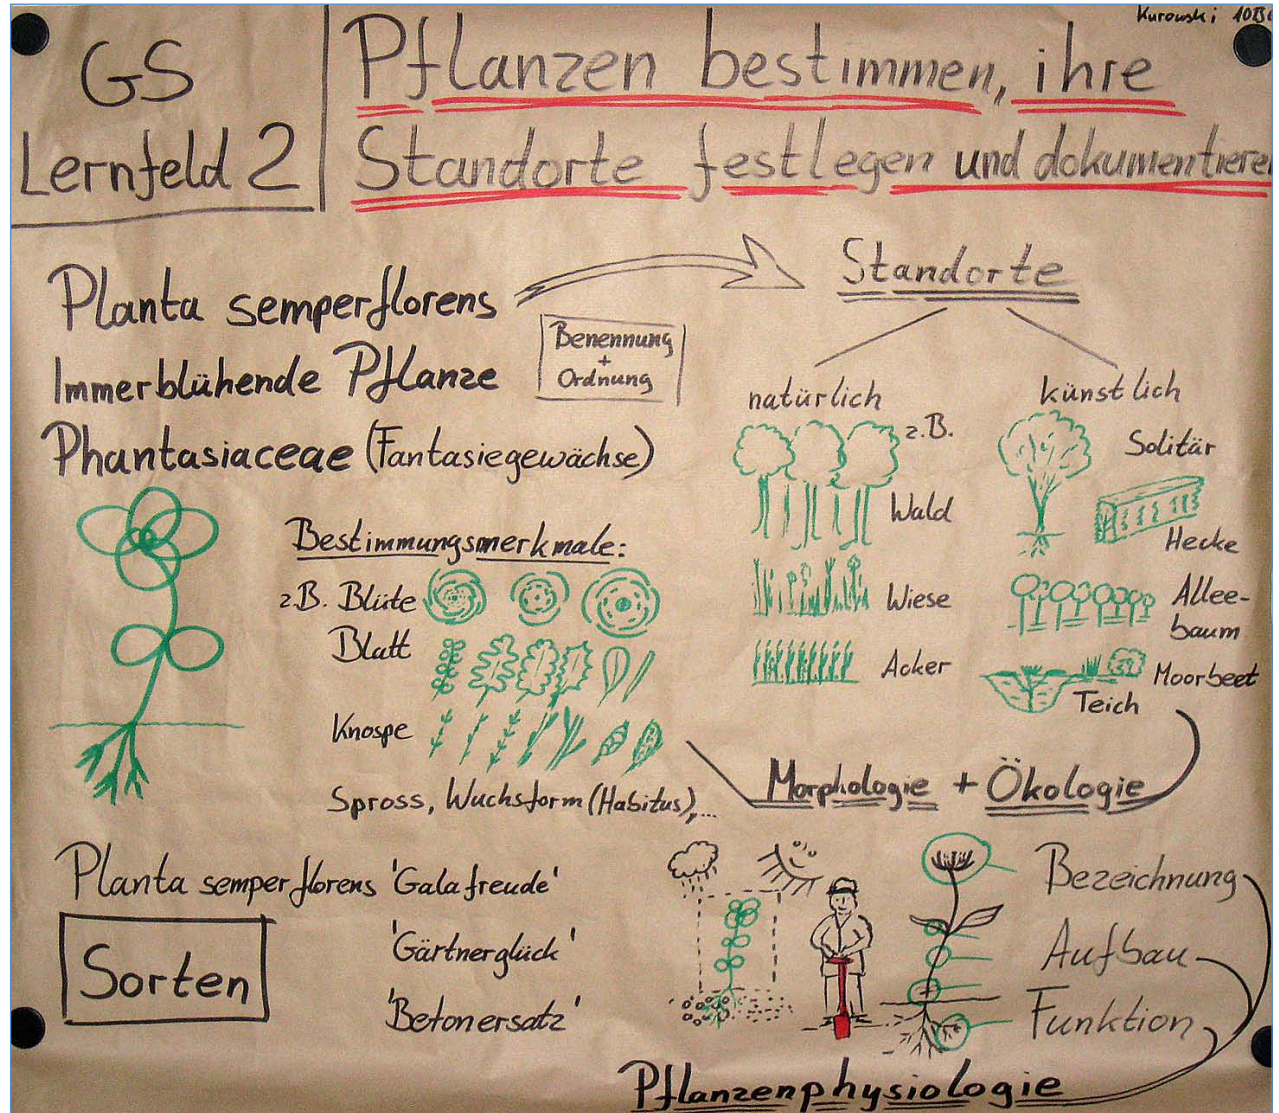 Kurowski 10B
GS
Lernfeld 2
Pflanzen bestimmen, ihre
Standorte festlegen und dokumentieren
Planta semperflorens
Immerblühende Pflanze
Phantasiaceae (Fantasiegewächse)
Benennung
+
Ordnung
Standorte
natürlich
z.B.
Wald
Wiese
Acker
künstlich
Solitär
Hecke
Allee-
baum
Moorbeet
Teich
Bestimmungsmerkmale:
z.B. Blüte
Blatt
Knospe
Spross, Wuchsform (Habitus),...
Morphologie + Ökologie
Planta semperflorens 'Galafreude'
'Gärtnerglück'
'Betonersatz'
Sorten
Bezeichnung
Aufbau
Funktion
Pflanzenphysiologie